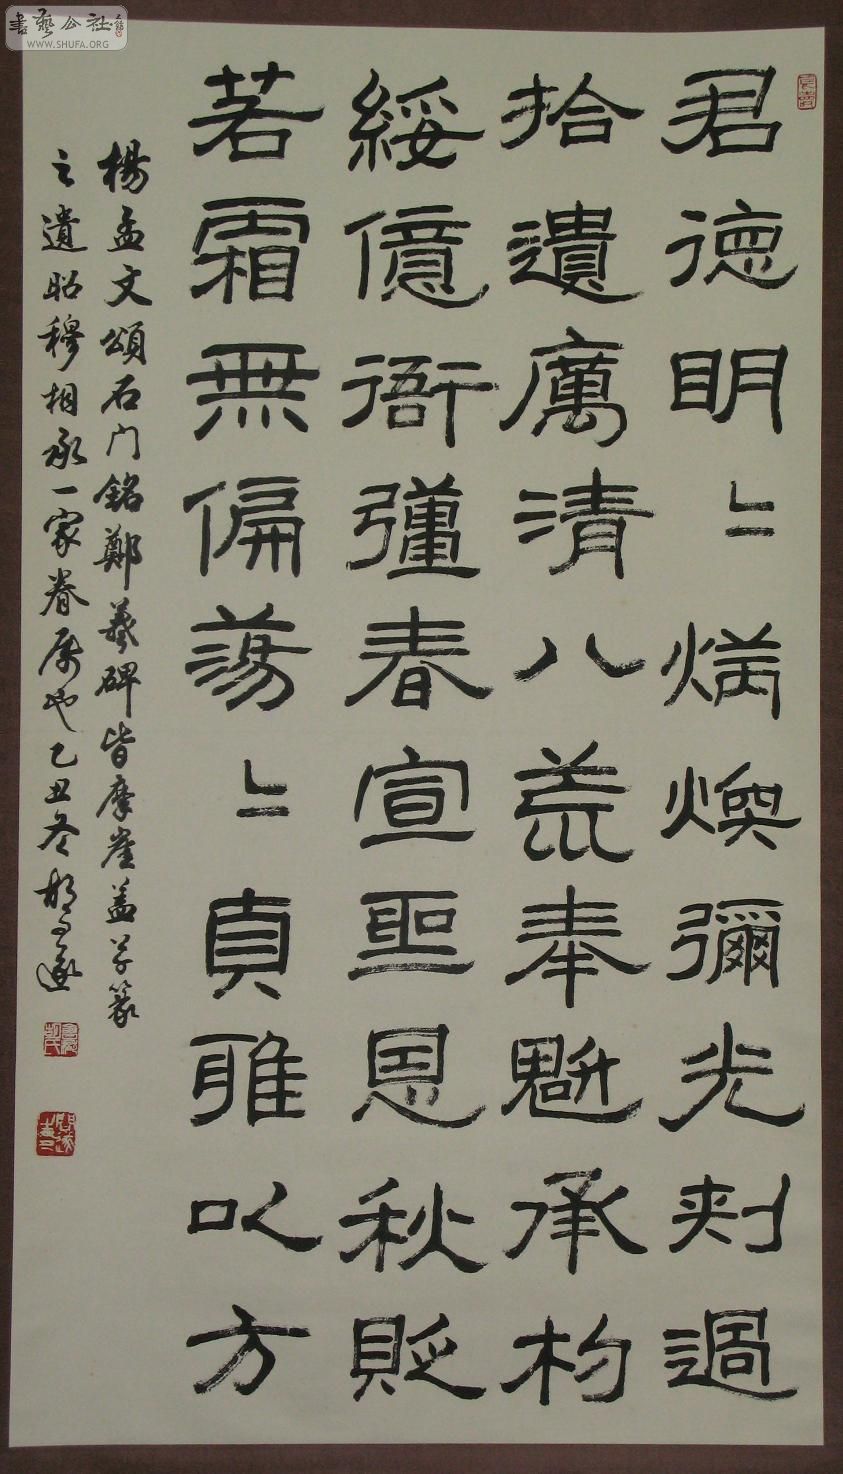 君德明〻炳煥彌光刺過
拾遺厲清八荒奉魁承杓
綏億衙彊春宣聖恩秋貶
若霜無偏蕩〻貞雅以方
楊孟文頌石门銘鄭羲碑皆摩崖蓋草篆
之遺昭穆相承一家眷属也乙丑冬胡问遂
書藝公社
WWW.SHUFA.ORG